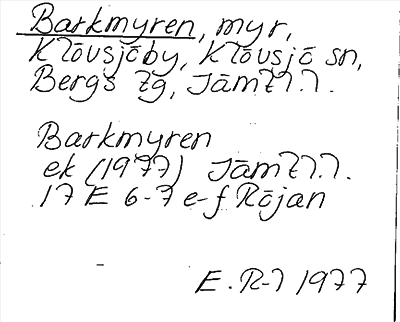 Barkmyren, myr,
Klövsjöby, Klövsjö sn,
Bergs tg, Jämtl.l.
Barkmyren
ek (1977) Jämtl.l.
17 E 6-7 e-f Röjan
E. R-l 1977